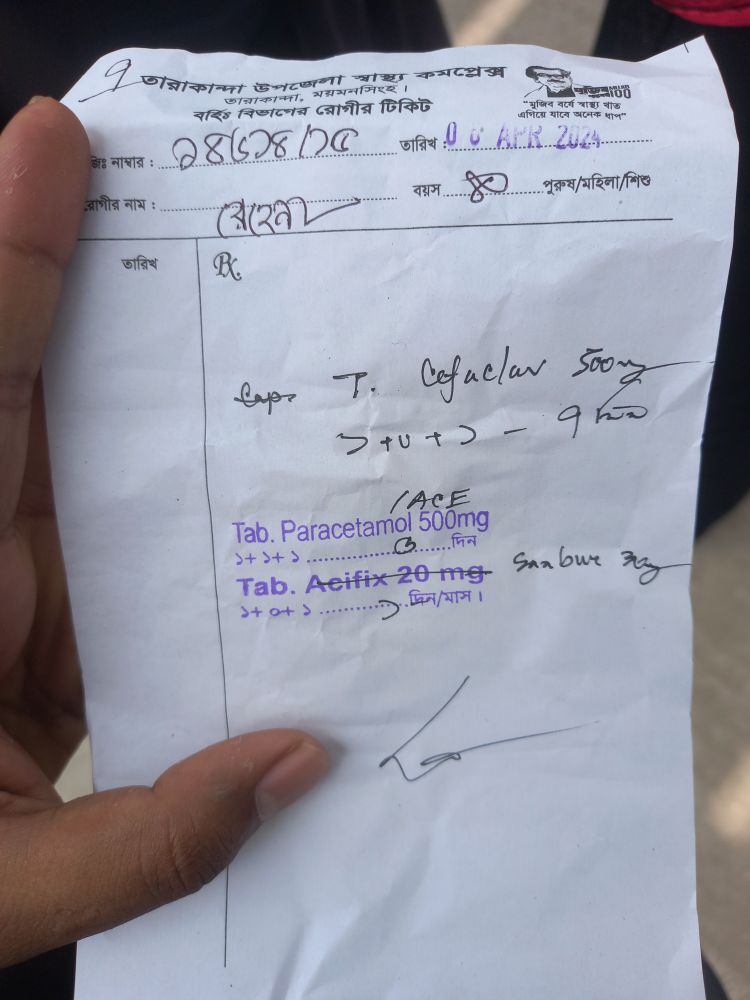 তারাকান্দা উপজেলা স্বাস্থ্য কমপ্লেক্স
তারাকান্দা, ময়মনসিংহ।
বর্হিঃ বিভাগের রোগীর টিকিট
"মুজিব বর্ষে স্বাস্থ্য খাত
এগিয়ে যাবে অনেক ধাপ"
জিঃ নাম্বার :
তারিখ : APR 2024
রোগীর নাম :
বয়স ৪০ পুরুষ/মহিলা/শিশু
তারিখ
Rx
Cap. T. Cefaclav 500mg
১+০+১ – ৭ দিন
/ACE
Tab. Paracetamol 500mg
১+১+১ ..................৩.......দিন
Tab. Acifix 20 mg
১+০+১ ..................১.....দিন/মাস।